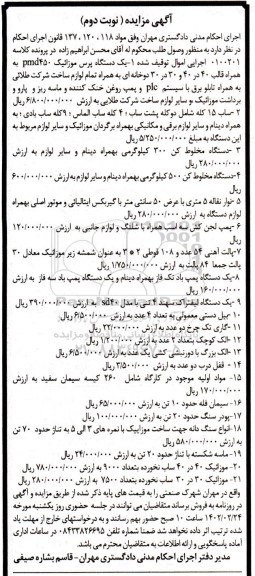 آگهی مزایده ( نوبت دوم )
اجرای احکام مدنی دادگستری مهران وفق مواد ۱۱۸ ، ۱۲۰ ، ۱۳۷ قانون اجرای احکام
در نظر دارد به منظور وصول طلب محکوم له آقای محسن ابراهیم زاده در پرونده کلاسه
۰۱۰۰۲۰۱ اجرایی اموال توقیف شده ۱-یک دستگاه پرس موزائیک pmd۴۵۰ به
همراه قالب ۴۰ در ۴۰ و ۳۰ در ۳۰ دوخانه ای به همراه تمام لوازم ساخت شرکت طلائی
به همراه تابلو برق با سیستم plc و پمپ روغن خنک کننده و ماسه ریز و پارو و
برداشت موزائیک و سایر لوازم ساخت شرکت طلایی به ارزش ۶/۸۰۰/۰۰۰/۰۰۰ ریال
۲-ساب ۱۵ کله شامل دوکله پشت ساب ۴۰ کله ساب الماس : ۹کله ساب بادی : به
همراه دینام و سایر لوازم برقی و مکانیکی بهمراه برگردان موزائیک و سایر لوازم مربوط به
این دستگاه به مبلغ ۵/۲۵۰/۰۰۰/۰۰۰ ریال
۳ -دستگاه مخلوط کن ۳۰۰ کیلوگرمی بهمراه دینام و سایر لوازم به ارزش
۲۸۰/۰۰۰/۰۰۰ ریال
۴-دستگاه مخلوط کن ۵۰۰ کیلوگرمی بهمراه دینام و سایر لوازم به ارزش ۶۰۰/۰۰۰/۰۰۰
ریال
۵ -نوار نقاله ۵ متری با عرض ۵۰ سانتی متر با گیربکس ایتالیائی و موتور اصلی بهمراه
لوازم دستگاه به ارزش ۲۸۰/۰۰۰/۰۰۰ ریال
۶-پمپ لجن کش نه اینچ بهمراه با شلنگ و لوازم جانبی به ارزش ۱۲۰/۰۰۰/۰۰۰
ریال
۷-پالت آهنی ۵۴ عدد و ۱۰۸ قوطی ۲ * ۳ به عنوان شمشه زیر موزائیک معادل ۳۰
پالت جمعا ۸۴ پالت به ارزش ۱/۷۵۰/۰۰۰/۰۰۰ ریال
۸-یک دستگاه پمپ باد تک فاز بهمراه دینام و یک دستگاه پمپ باد سه فاز به ارزش
۱۶۰/۰۰۰/۰۰۰ ریال
۹ -یک دستگاه لیفتراک سهند ۳ تنی با مدل sd۳۰ به ارزش ۳۹۰/۰۰۰/۰۰۰ ریال
۱۰ -بیل دستی معمولی به تعداد ۴ عدد به ارزش ۶/۵۰۰/۰۰۰ ریال
۱۱-گاری تک چرخ دو عدد به ارزش ۲۲/۰۰۰/۰۰۰ ریال
۱۲-الک کوچک بتعداد ۲ عدد به ارزش ۱/۲۰۰/۰۰۰ ریال
۱۳-الک بزرگ با دورنبشی کشی یک عدد به ارزش ۶/۵۰۰/۰۰۰ ریال
۱۴ - قفل درب دو عدد به ارزش ۳/۵۰۰/۰۰۰ ریال
۱۵- مواد اولیه موجود در کارگاه شامل ۲۶۰ کیسه سیمان سفید به ارزش
۱۷۰/۰۰۰/۰۰۰ ریال
۱۶-سیمان فله حدود ۱۰ تن به ارزش ۶۵/۰۰۰/۰۰۰ ریال
۱۷-پودر سنگ حدود ۲۰ تن به ارزش ۱۰۰/۰۰۰/۰۰۰ ریال
۱۸-انواع سنگ دانه جهت ساخت موزاییک با نمره های ۳ الی ۵ به تناژ حدود ۷۰ تن
به ارزش ۵۸۰/۰۰۰/۰۰۰ ریال
۱۹-ماسه شکسته با تناژ حدود ۲۰ تن به ارزش ۲۴/۰۰۰/۰۰۰ ریال
۲۰- موزائیک ۴۰ در ۴۰ ساب نخورده بتعداد ۹۰۰۰ به ارزش ۷۸۰/۰۰۰/۰۰۰ ریال
۲۱-موزائیک ۳۰ در ۳۰ ساب نخورده بتعداد ۷۵۰۰ به ارزش ۲۸۰/۰۰۰/۰۰۰ ریال
واقع در مهران شهرک صنعتی را به قیمت های پایه ذکر شده از طریق مزایده و آگهی
در روزنامه به فروش برساند متقاضیان می توانند در جلسه حضوری روز یکشنبه مورخه
۱۴۰۲/۲/۲۴ ساعت ۱۰ صبح حضور بهم رسانند و به درخواستهای خارج از مهلت یاد
شده ترتیب اثر داده نخواهد شد ضمنا شماره تلفن ۰۸۴۳۳۸۲۶۶۹۵ در ساعات اداری
آماده پاسخگویی و ارائه اطلاعات به متقاضیان محترم می باشد.
مدیر دفتر اجرای احکام مدنی دادگستری مهران- قاسم بشاره صیفی